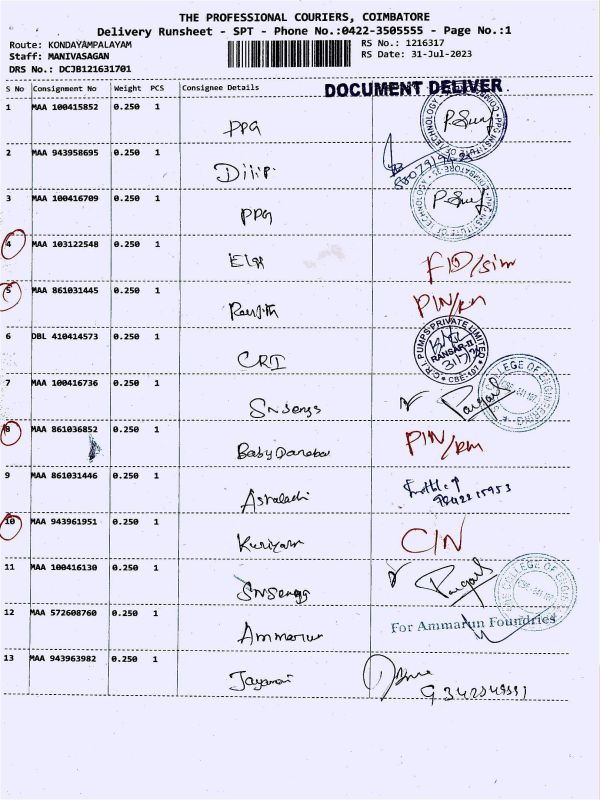 THE PROFESSIONAL COURIERS, COIMBATORE
Delivery Runsheet - SPT - Phone No.:0422-3505555 - Page No.:1
Route: KONDAYAMPALAYAM RS No.: 1216317
Staff: MANIVASAGAN RS Date: 31-Jul-2023
DRS No.: DCJB121631701
S No Consignment No Weight PCS Consignee Details
DOCUMENT DELIVER
1 MAA 100415852 0.250 1
PPG
2 MAA 943958695 0.250 1
Dilip
3 MAA 100416709 0.250 1
PPG
PPG INSTITUTE OF TECHNOLOGY
4 MAA 103122548 0.250 1
5 MAA 861031445 0.250 1
Ranjith
6 DBL 410414573 0.250 1
CRI
C.R.I. PUMPS PRIVATE LIMITED
RANSAR-II
CBE-107
7 MAA 100416736 0.250 1
SNS engg
COLLEGE OF ENGINEERING
8 MAA 861036852 0.250 1
PIN/
9 MAA 861031446 0.250 1
10 MAA 943961951 0.250 1
CIN
11 MAA 100416130 0.250 1
SNS engg
COLLEGE OF
12 MAA 572608760 0.250 1
Ammarun
For Ammarun Foundries
13 MAA 943963982 0.250 1